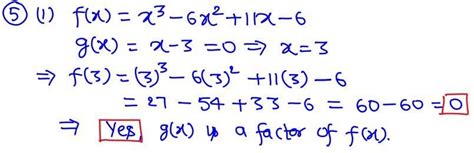 ⑤ (1) f(x) = x³ - 6x² + 11x - 6
g(x) = x - 3 = 0 ⇒ x = 3
⇒ f(3) = (3)³ - 6(3)² + 11(3) - 6
= 27 - 54 + 33 - 6 = 60 - 60 = 0
⇒ Yes, g(x) is a factor of f(x).